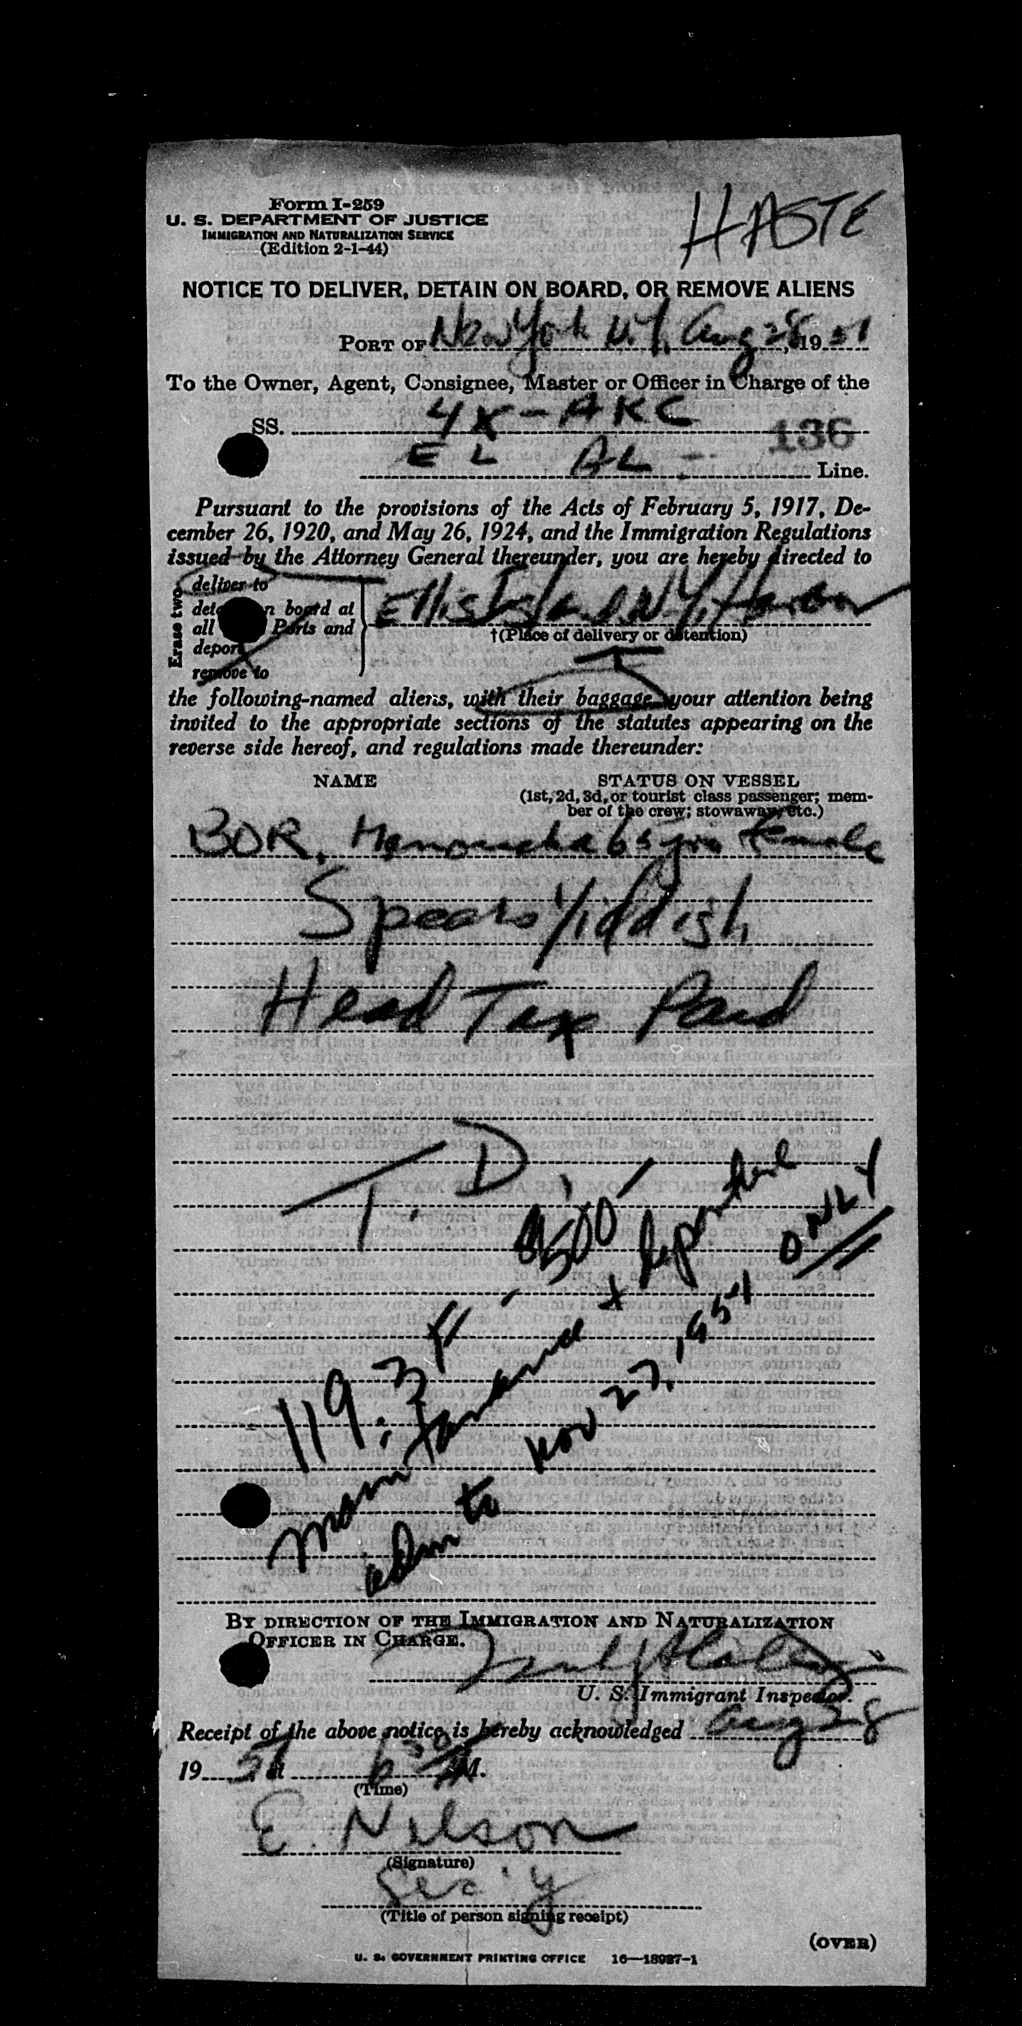 HASTE
Form I-259
U. S. DEPARTMENT OF JUSTICE
IMMIGRATION AND NATURALIZATION SERVICE
(Edition 2-1-44)
NOTICE TO DELIVER, DETAIN ON BOARD, OR REMOVE ALIENS
PORT OF New York N.Y. Aug 28, 1951
To the Owner, Agent, Consignee, Master or Officer in Charge of the
SS. 4X-AKC
136
EL AL - Line.
Pursuant to the provisions of the Acts of February 5, 1917, De-
cember 26, 1920, and May 26, 1924, and the Immigration Regulations
issued by the Attorney General thereunder, you are hereby directed to
Erase two
deliver to
on board at
all Ports and
deport
remove to
Ellis Island N.Y. Harbor
†(Place of delivery or detention)
the following-named aliens, with their baggage your attention being
invited to the appropriate sections of the statutes appearing on the
reverse side hereof, and regulations made thereunder:
NAME STATUS ON VESSEL
(1st, 2d, 3d, or tourist class passenger; mem-
ber of the crew; stowaway, etc.)
BOR, Menoucha 65 yrs female
Spears Yiddish
Head Tax Paid
T. D.
119.3F - $500-
maintenance + departure
adm to Nov 27, 1951 ONLY
BY DIRECTION OF THE IMMIGRATION AND NATURALIZATION
OFFICER IN CHARGE.
U. S. Immigrant Inspector.
Receipt of the above notice is hereby acknowledged Aug 28
1951 at 6 30 M.
(Time)
E. Nelson
(Signature)
Sec'y
(Title of person signing receipt)
(OVER)
U. S. GOVERNMENT PRINTING OFFICE 16—18987-1